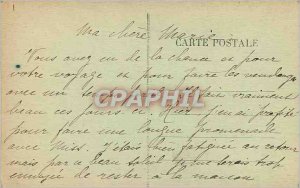 Ma chère Marie
CARTE POSTALE
Vous avez eu de la chance et pour
votre voyage et pour faire les vendanges
avec un vraiment
CPARAMA.COM
beau ces jours ci. Hier j'ai profité
pour faire une longue promenade
avec Miss. J'étais bien fatiguée au retour
mais par ce beau soleil
envie de rester à la maison